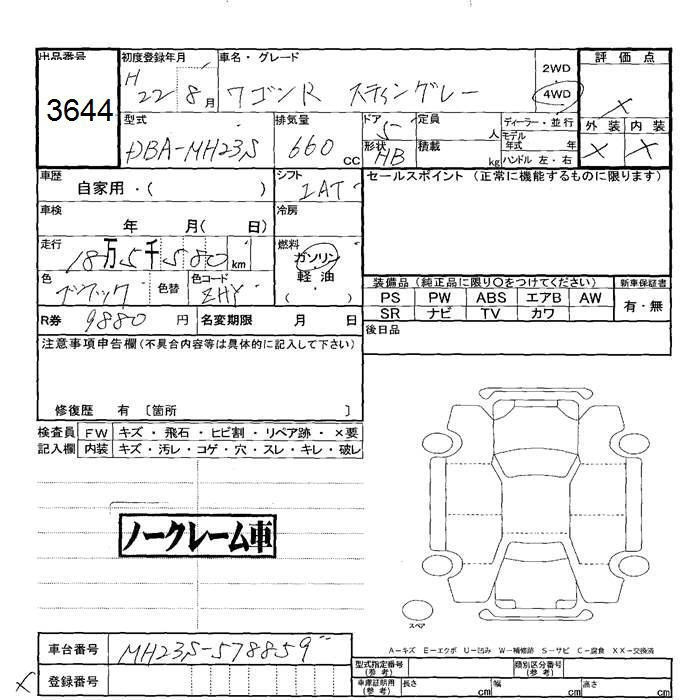 出品番号 初度登録年月 車名・グレード 2WD 評価点
3644 H 22 8月 ワゴンR スティングレー 4WD ×
型式 排気量 ドア 5 定員 人 ディーラー・並行 外装 内装
DBA-MH23S 660 cc 形状 HB 積載 kg モデル年式 年 × ×
ハンドル 左・右
車歴 自家用・( ) シフト IAT セールスポイント (正常に機能するものに限ります)
車検 年 月( 日) 冷房
走行 18万5千580km 燃料 ガソリン 軽油
色 色替 色コード ZHY ・( )
装備品 (純正品に限り○をつけてください) 新車保証書
PS PW ABS エアB AW 有・無
SR ナビ TV カワ
R券 9880 円 名変期限 月 日 後日品
注意事項申告欄(不具合内容等は具体的に記入して下さい)
修復歴 有 〔箇所 〕
検査員 FW キズ・飛石・ヒビ割・リペア跡・×要
記入欄 内装 キズ・汚レ・コゲ・穴・スレ・キレ・破レ
ノークレーム車
スペア
A-キズ E-エクボ U-凹み W-補修跡 S-サビ C-腐食 XX-交換済
車台番号 MH23S-578859
× 登録番号
型式指定番号(参考) 類別区分番号(参考)
車庫証明用(参考) 長さ cm 幅 cm 高さ cm